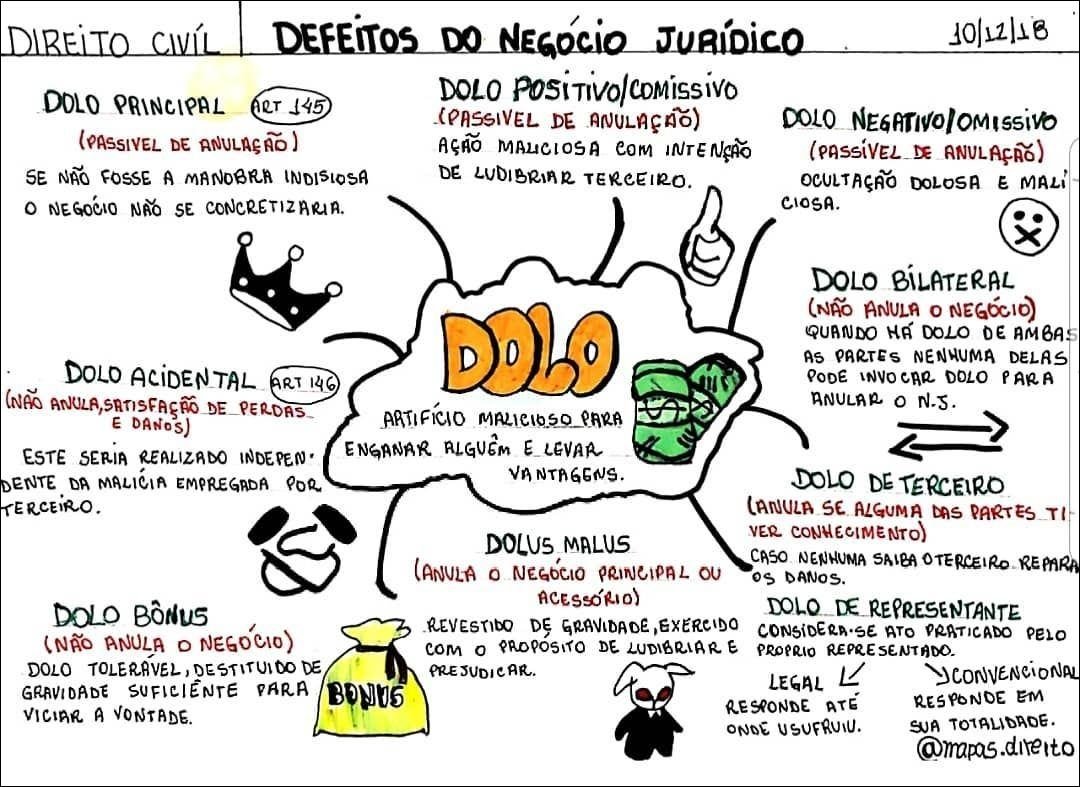 DIREITO CIVÍL
DEFEITOS DO NEGÓCIO JURÍDICO
10/12/18
DOLO PRINCIPAL ART 145
(PASSIVEL DE ANULAÇÃO)
SE NÃO FOSSE A MANOBRA INDISIOSA
O NEGÓCIO NÃO SE CONCRETIZARIA.
DOLO POSITIVO/COMISSIVO
(PASSIVEL DE ANULAÇÃO)
AÇÃO MALICIOSA COM INTENÇÃO
DE LUDIBRIAR TERCEIRO.
DOLO NEGATIVO/OMISSIVO
(PASSÍVEL DE ANULAÇÃO)
OCULTAÇÃO DOLOSA E MALI
CIOSA.
DOLO BILATERAL
(NÃO ANULA O NEGÓCIO)
QUANDO HÁ DOLO DE AMBAS
AS PARTES NENHUMA DELAS
PODE INVOCAR DOLO PARA
ANULAR O N.J.
DOLO
ARTIFÍCIO MALICIOSO PARA
ENGANAR ALGUÊM E LEVAR
VANTAGENS.
DOLO ACIDENTAL ART 146
(NÃO ANULA, SATISFAÇÃO DE PERDAS
E DANOS)
ESTE SERIA REALIZADO INDEPEN-
DENTE DA MALÍCIA EMPREGADA POR
TERCEIRO.
DOLO DE TERCEIRO
(ANULA SE ALGUMA DAS PARTES TI-
VER CONHECIMENTO)
CASO NENHUMA SAIBA O TERCEIRO REPARA
OS DANOS.
DOLUS MALUS
(ANULA O NEGÓCIO PRINCIPAL OU
ACESSÓRIO)
REVESTIDO DE GRAVIDADE, EXERCIDO
COM O PROPÓSITO DE LUDIBRIAR E
PREJUDICAR.
DOLO BÔNUS
(NÃO ANULA O NEGÓCIO)
DOLO TOLERÁVEL, DESTITUIDO DE
GRAVIDADE SUFICIÊNTE PARA
VICIAR A VONTADE.
BONUS
DOLO DE REPRESENTANTE
CONSIDERA-SE ATO PRATICADO PELO
PROPRIO REPRESENTADO.
LEGAL
RESPONDE ATÉ
ONDE USUFRUIU.
CONVENCIONAL
RESPONDE EM
SUA TOTALIDADE.
@mapas.direito